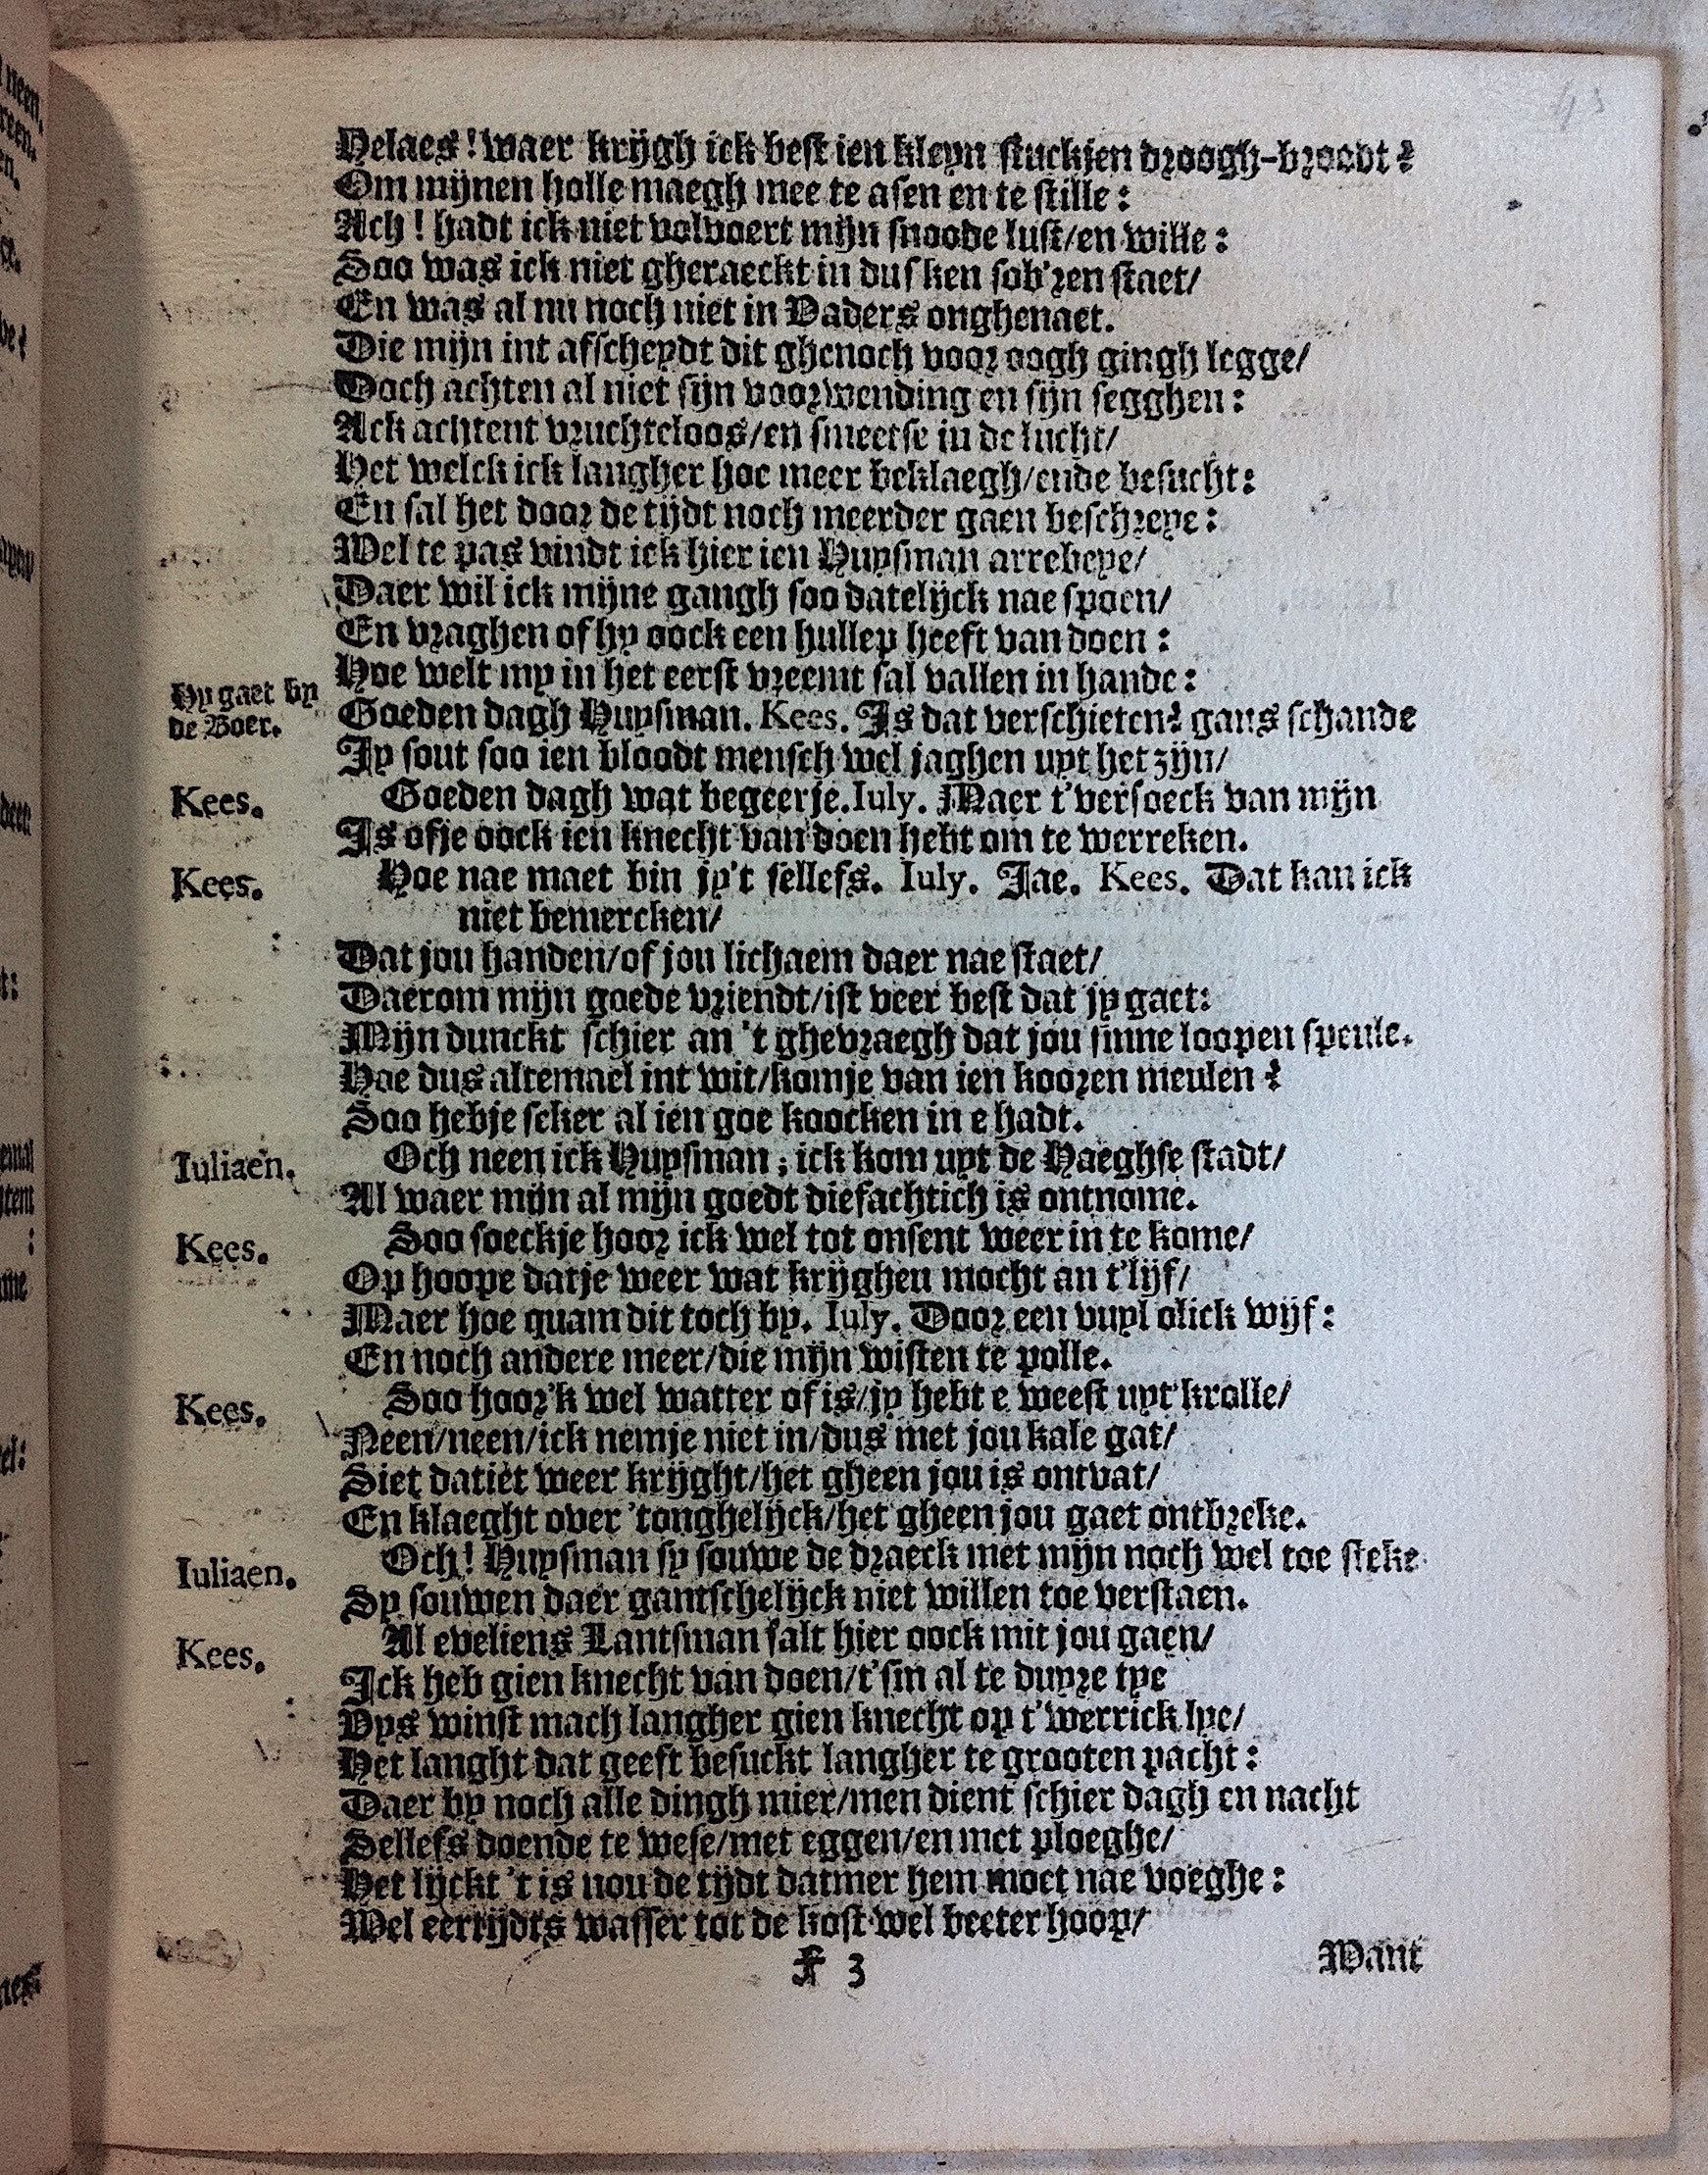 Helaes! waer krijgh ick best ien kleyn stuckjen droogh-broodt?
Om mijnen holle maegh mee te asen en te stille:
Ach! hadt ick niet volvoert mijn snoode lust/en wille:
Soo was ick niet gheraeckt in dusken sob'ren staet/
En was al nu noch niet in Vaders onghenaet.
Die mijn int afscheydt dit ghenoch voor oogh gingh legge/
Doch achten al niet sijn voorwending en sijn segghen:
Ack achtent vruchteloos/en smeetse in de lucht/
Het welck ick langher hoe meer beklaegh/ende besucht:
En sal het door de tijdt noch meerder gaen beschreye:
Wel te pas vindt ick hier ien Huysman arrebeye/
Daer wil ick mijne gangh soo datelijck nae spoen/
En vraghen of hy oock een hullep heeft van doen:
Hoe welt my in het eerst vreemt sal vallen in hande:
Hy gaet by
de Boer.
Goeden dagh Huysman. Kees. Is dat verschieten? gans schande
Jy sout soo ien bloodt mensch wel jaghen uyt het zijn/
Kees. Goeden dagh wat begeerje. Iuly. Maer t'versoeck van mijn
Is ofje oock ien knecht van doen hebt om te werreken.
Kees. Hoe nae maet bin jy't sellefs. Iuly. Jae. Kees. Dat kan ick
niet bemercken/
Dat jou handen/of jou lichaem daer nae staet/
Daerom mijn goede vriendt/ist veer best dat jy gaet:
Mijn dunckt schier an 't ghevraegh dat jou sinne loopen speule.
Hoe dus altemael int wit/komje van ien kooren meulen?
Soo hebje seker al ien goe koocken in e hadt.
Iuliaen. Och neen ick Huysman; ick kom uyt de Haeghse stadt/
Al waer mijn al mijn goedt diefachtich is ontnome.
Kees. Soo soeckje hoor ick wel tot onsent weer in te kome/
Op hoope datje weer wat krijghen mocht an t'lijf/
Maer hoe quam dit toch by. Iuly. Door een vuyl olick wijf:
En noch andere meer/die mijn wisten te polle.
Kees. Soo hoor'k wel watter of is/jy hebt e weest uyt krolle/
Neen/neen/ick nemje niet in/dus met jou kale gat/
Siet datiet weer krijght/het gheen jou is ontvat/
En klaeght over 'tonghelijck/het gheen jou gaet ontbreke.
Iuliaen. Och! Huysman sy souwe de draeck met mijn noch wel toe steke
Sy souwen daer gantschelijck niet willen toe verstaen.
Kees. Al eveliens Lantsman salt hier oock mit jou gaen/
Ick heb gien knecht van doen/t'sin al te duyre tye
Uys winst mach langher gien knecht op t'werrick lye/
Het langht dat geeft besuckt langher te grooten pacht:
Daer by noch alle dingh mier/men dient schier dagh en nacht
Sellefs doende te wese/met eggen/en met ploeghe/
Het lijckt 't is nou de tijdt datmer hem moet nae voeghe:
Wel eertijdts wasser tot de kost wel beeter hoop/
F 3
Want